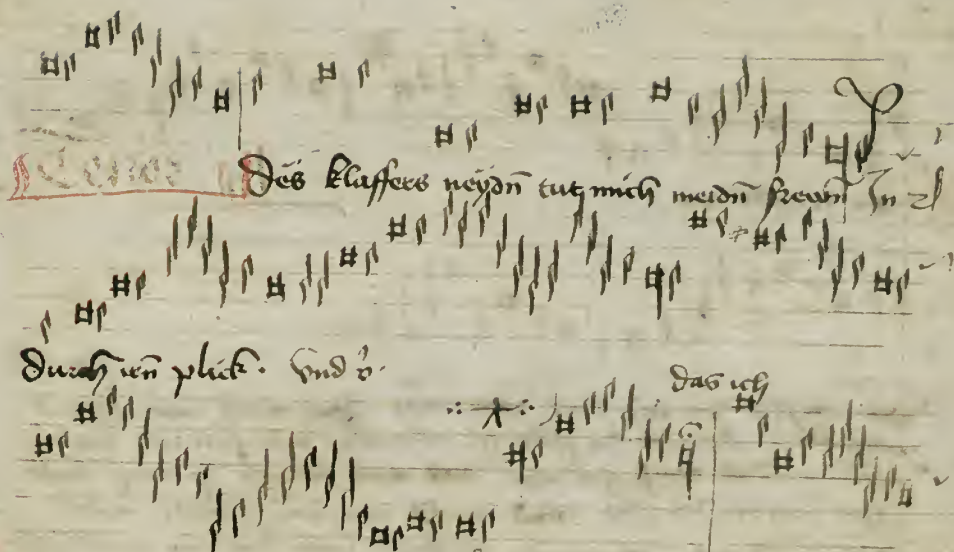 Tenor Des klaffers neydn̄ tutz mich meidn̄ frewn̄ In
durch irn̄ plick. Vnd
das ich